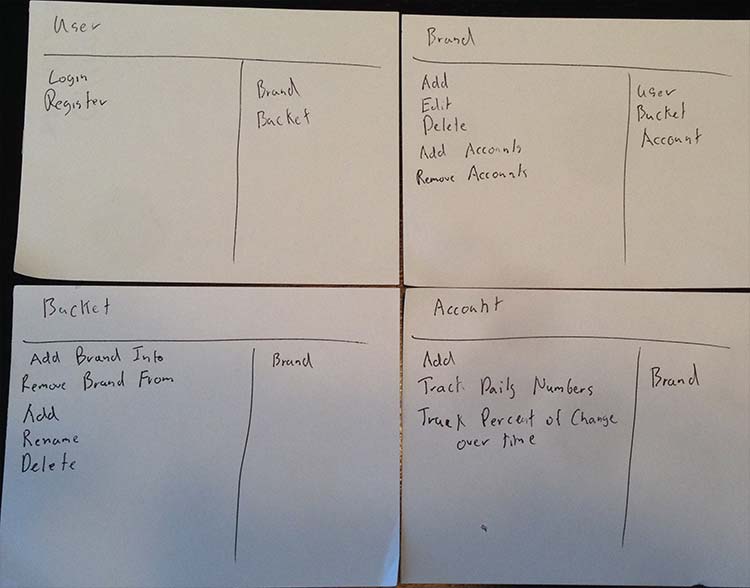 User
Login
Register
Brand
Bucket
Brand
Add
Edit
Delete
Add Accounts
Remove Accounts
User
Bucket
Account
Bucket
Add Brand Into
Remove Brand From
Add
Rename
Delete
Brand
Account
Add
Track Daily Numbers
Track Percent of Change
over time
Brand